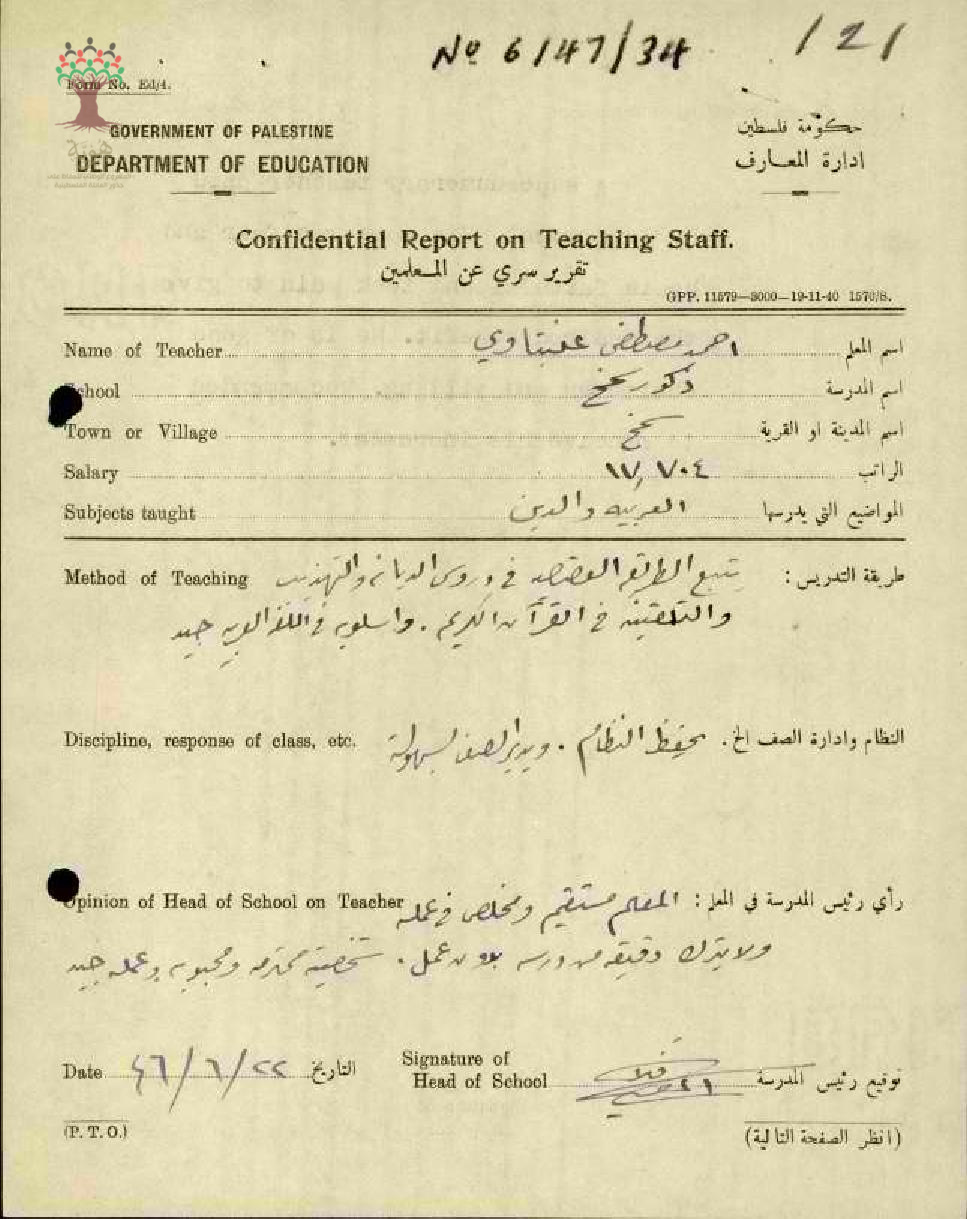 No 6/47/34
/2/
Form No. Ed/4.
GOVERNMENT OF PALESTINE
حكومة فلسطين
DEPARTMENT OF EDUCATION
ادارة المعارف
Confidential Report on Teaching Staff.
تقرير سري عن المعلمين
GPP. 11579—3000—19-11-40 1570/S.
Name of Teacher احمد مصطفى عنبتاوي اسم المعلم
School ذكور اسم المدرسة
Town or Village اسم المدينة او القرية
Salary ١٧,٧٠٤ الراتب
Subjects taught العربيه والدين المواضيع التي يدرسها
Method of Teaching يتبع الطريقه في دروس الديانه والتهذيب طريقة التدريس :
في القرآن الكريم . واسلوبه في اللغه العربيه جيد
Discipline, response of class, etc. يحفظ النظام . ويدير الصف بسهولة النظام وادارة الصف الخ .
Opinion of Head of School on Teacher المعلم مستقيم ومخلص في عمله رأي رئيس المدرسة في المعلم :
ولا يترك دقيقه من درسه بدون عمل . شخصيته محترمه ومحبوبه وعمله جيد
Date ٢٢/٦/٤٦ التاريخ
Signature of
Head of School توقيع رئيس المدرسة
(P. T. O.)
(انظر الصفحة التالية)